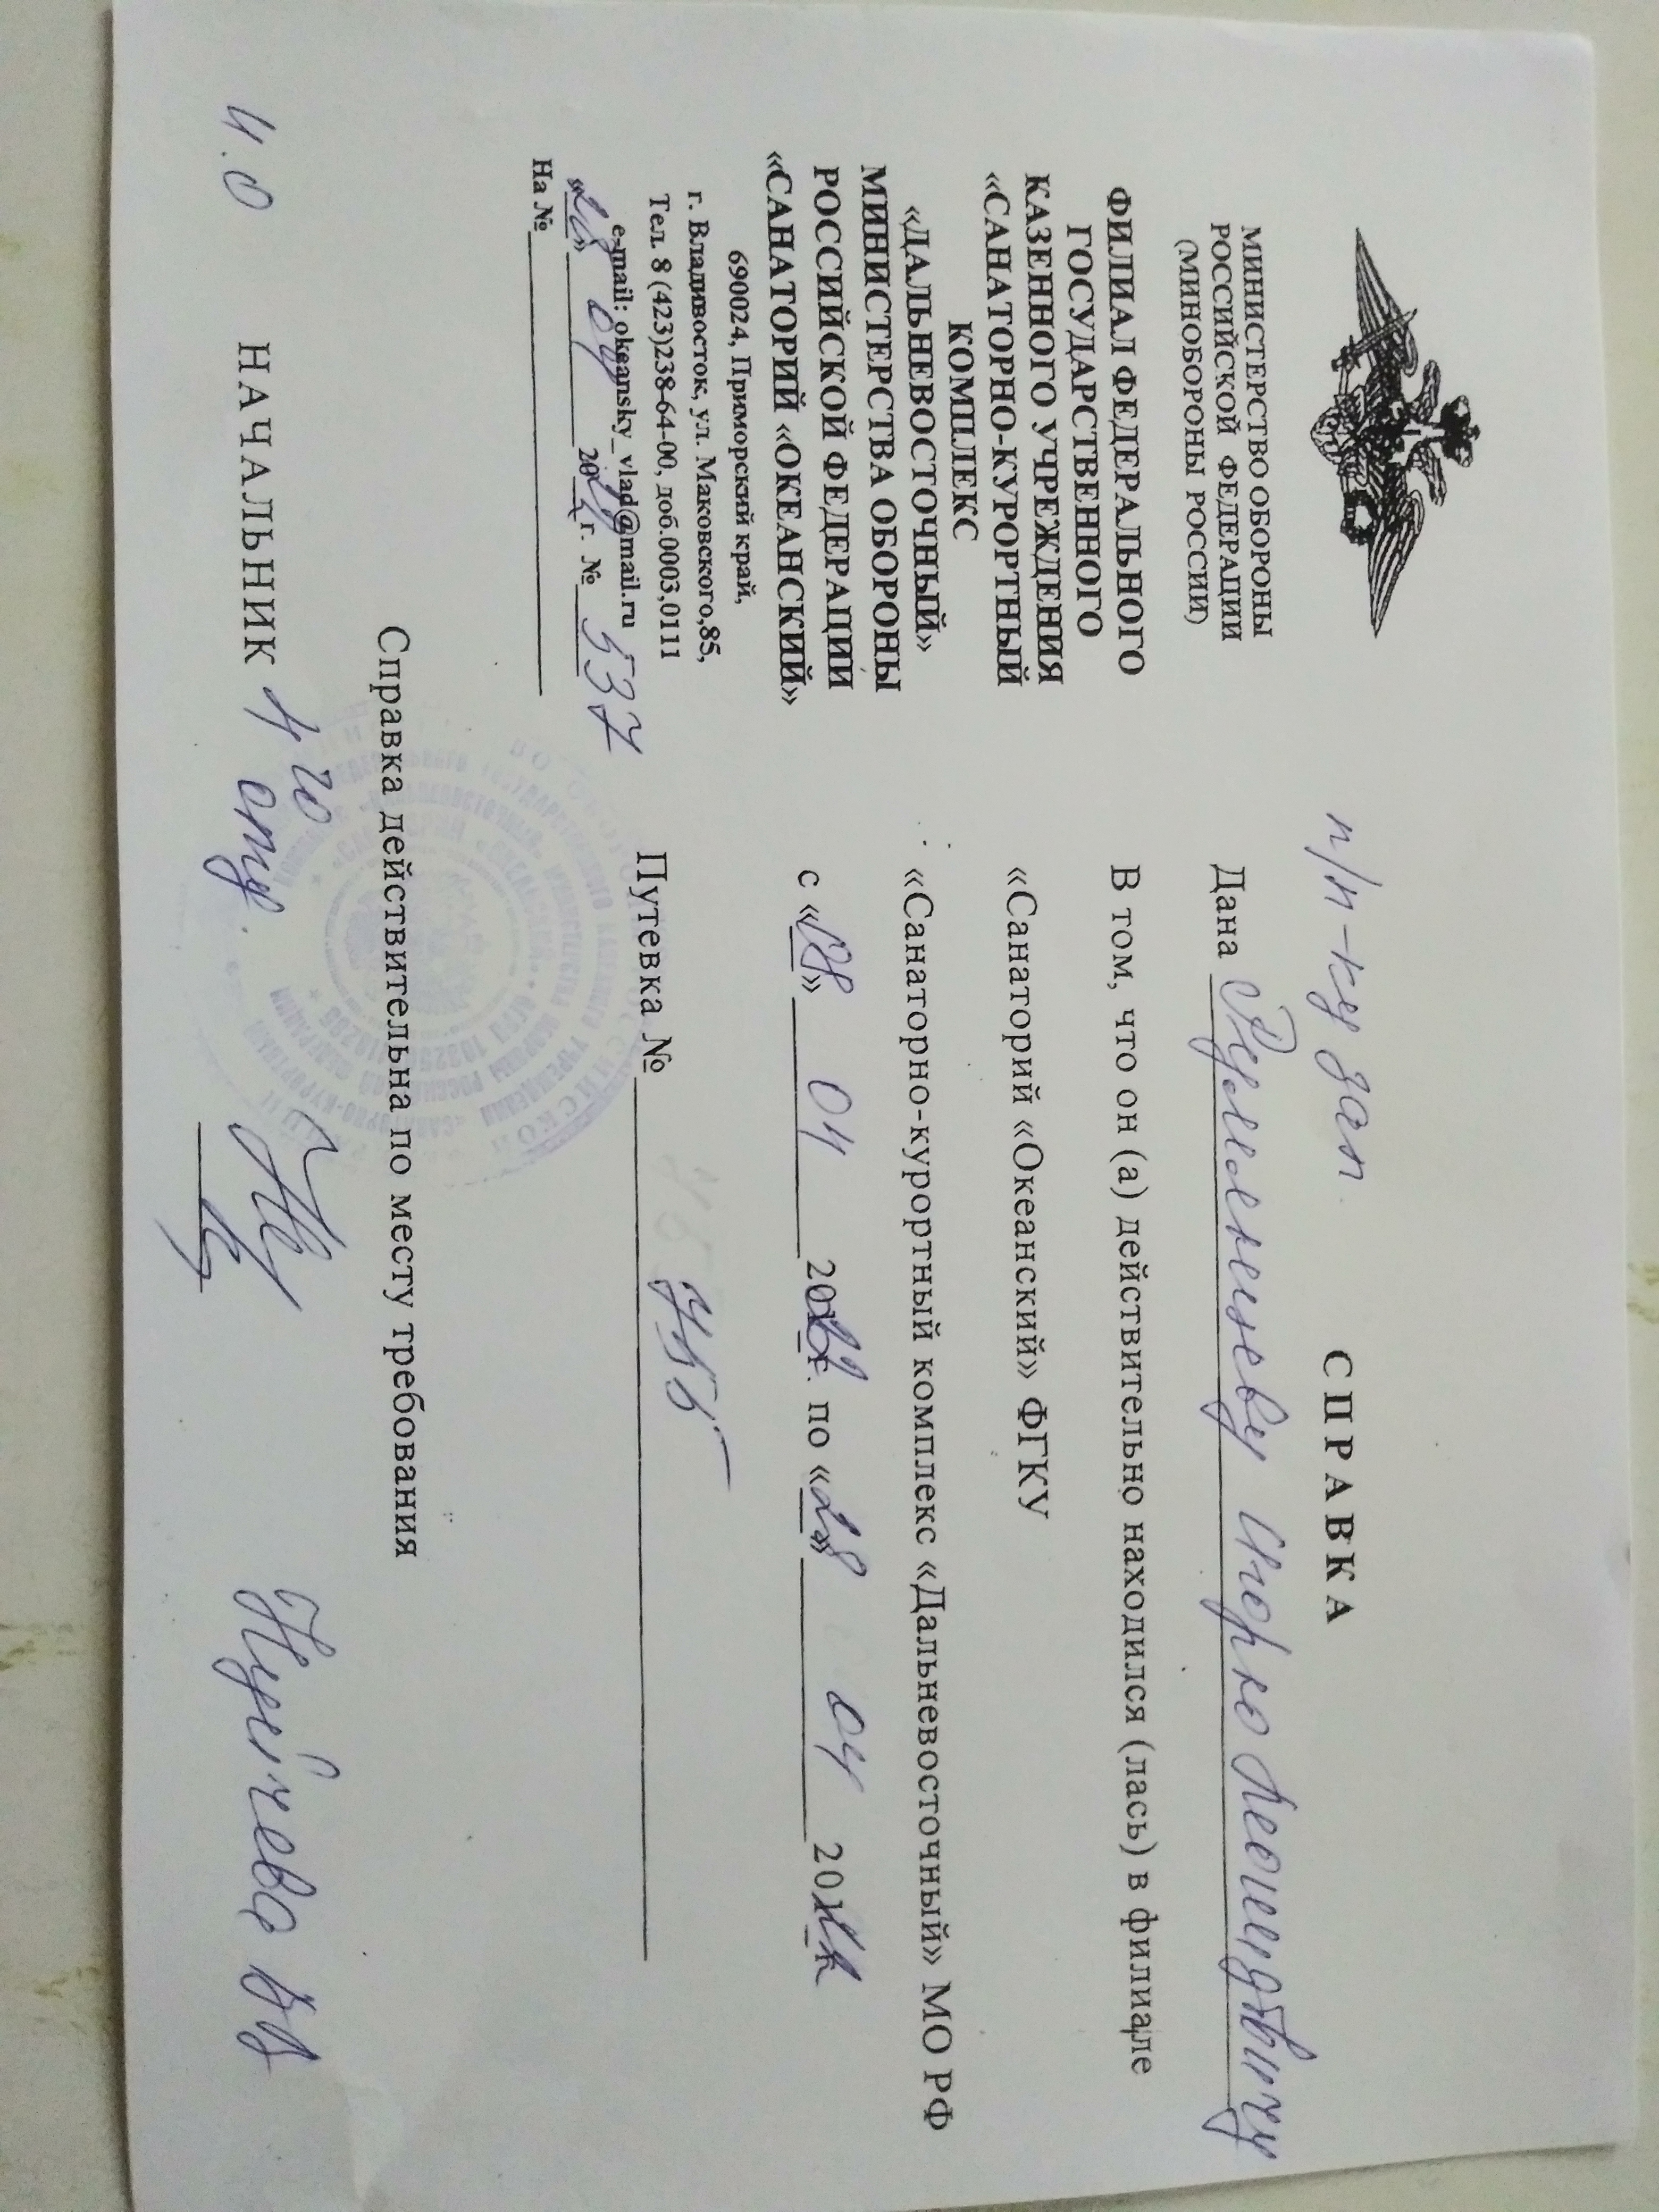 МИНИСТЕРСТВО ОБОРОНЫ
РОССИЙСКОЙ ФЕДЕРАЦИИ
(МИНОБОРОНЫ РОССИИ)
ФИЛИАЛ ФЕДЕРАЛЬНОГО
ГОСУДАРСТВЕННОГО
КАЗЕННОГО УЧРЕЖДЕНИЯ
«САНАТОРНО-КУРОРТНЫЙ
КОМПЛЕКС
«ДАЛЬНЕВОСТОЧНЫЙ»
МИНИСТЕРСТВА ОБОРОНЫ
РОССИЙСКОЙ ФЕДЕРАЦИИ
«САНАТОРИЙ «ОКЕАНСКИЙ»
690024, Приморский край,
г. Владивосток, ул. Маковского,85,
Тел. 8 (423)238-64-00, доб.0003,0111
e-mail: okeansky_vlad@mail.ru
«28» 04 20 г. № 537
На №
СПРАВКА
п/п-ку зап.
Дана Игорю Леонидовичу
В том, что он (а) действительно находился (лась) в филиале
«Санаторий «Океанский» ФГКУ
«Санаторно-курортный комплекс «Дальневосточный» МО РФ
с «08» 04 20 г. по «28» 04 20
Путевка № 455
Справка действительна по месту требования
И.О НАЧАЛЬНИК